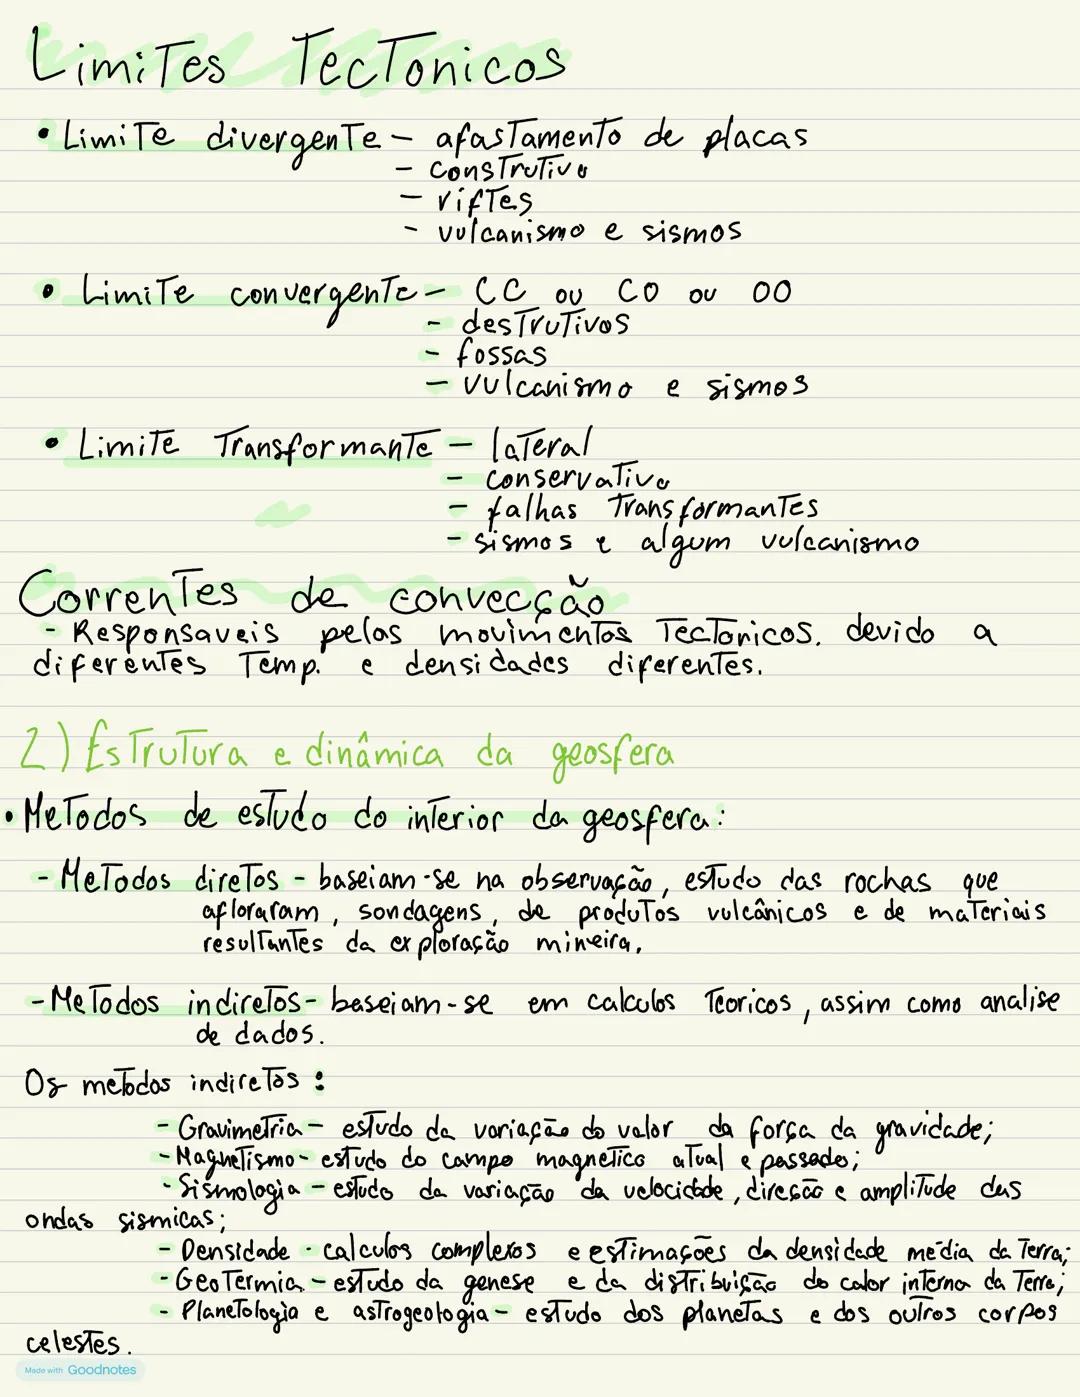 Limites Tectonicos
• Limite divergente – afastamento de placas
– construtivo
– riftes
– vulcanismo e sismos
• Limite convergente – CC ou CO ou OO
– destrutivos
– fossas
– vulcanismo e sismos
• Limite Transformante – lateral
– conservativo
– falhas Transformantes
– sismos e algum vulcanismo
Correntes de convecção
- Responsaveis pelos movimentos Tectonicos. devido a
diferentes Temp. e densidades diferentes.
2) Estrutura e dinâmica da geosfera
• Metodos de estudo do interior da geosfera:
- Metodos diretos - baseiam-se na observação, estudo das rochas que
afloraram, sondagens, de produtos vulcânicos e de materiais
resultantes da exploração mineira.
- Metodos indiretos - baseiam-se em calculos Teoricos, assim como analise
de dados.
Os metodos indiretos:
- Gravimetria – estudo da variação do valor da força da gravidade;
- Magnetismo - estudo do campo magnetico atual e passado;
- Sismologia – estudo da variação da velocidade, direção e amplitude das
ondas sismicas;
- Densidade - calculos complexos e estimações da densidade média da Terra;
- Geotermia – estudo da genese e da distribuição do calor interno da Terra;
- Planetologia e astrogeologia – estudo dos planetas e dos outros corpos
celestes.
Made with Goodnotes